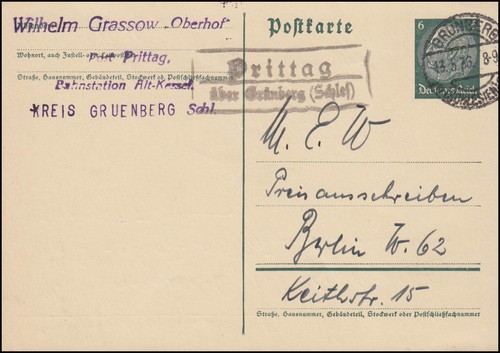 Wilhelm Grassow Oberhof
Wohnort, auch Zustell- oder Leitpostamt
post Prittag,
Straße, Hausnummer, Gebäudeteil, Stockwerk od. Postschließfachnummer
Bahnstation Alt-Kessel.
KREIS GRUENBERG Schl.
Postkarte
Prittag
über Grünberg (Schles)
6
Deutsches Reich
GRÜNBERG
8-9
(SCHLESIEN)
M. E. W
Preisausschreiben
Berlin W. 62
Keithstr. 15
Straße, Hausnummer, Gebäudeteil, Stockwerk oder Postschließfachnummer